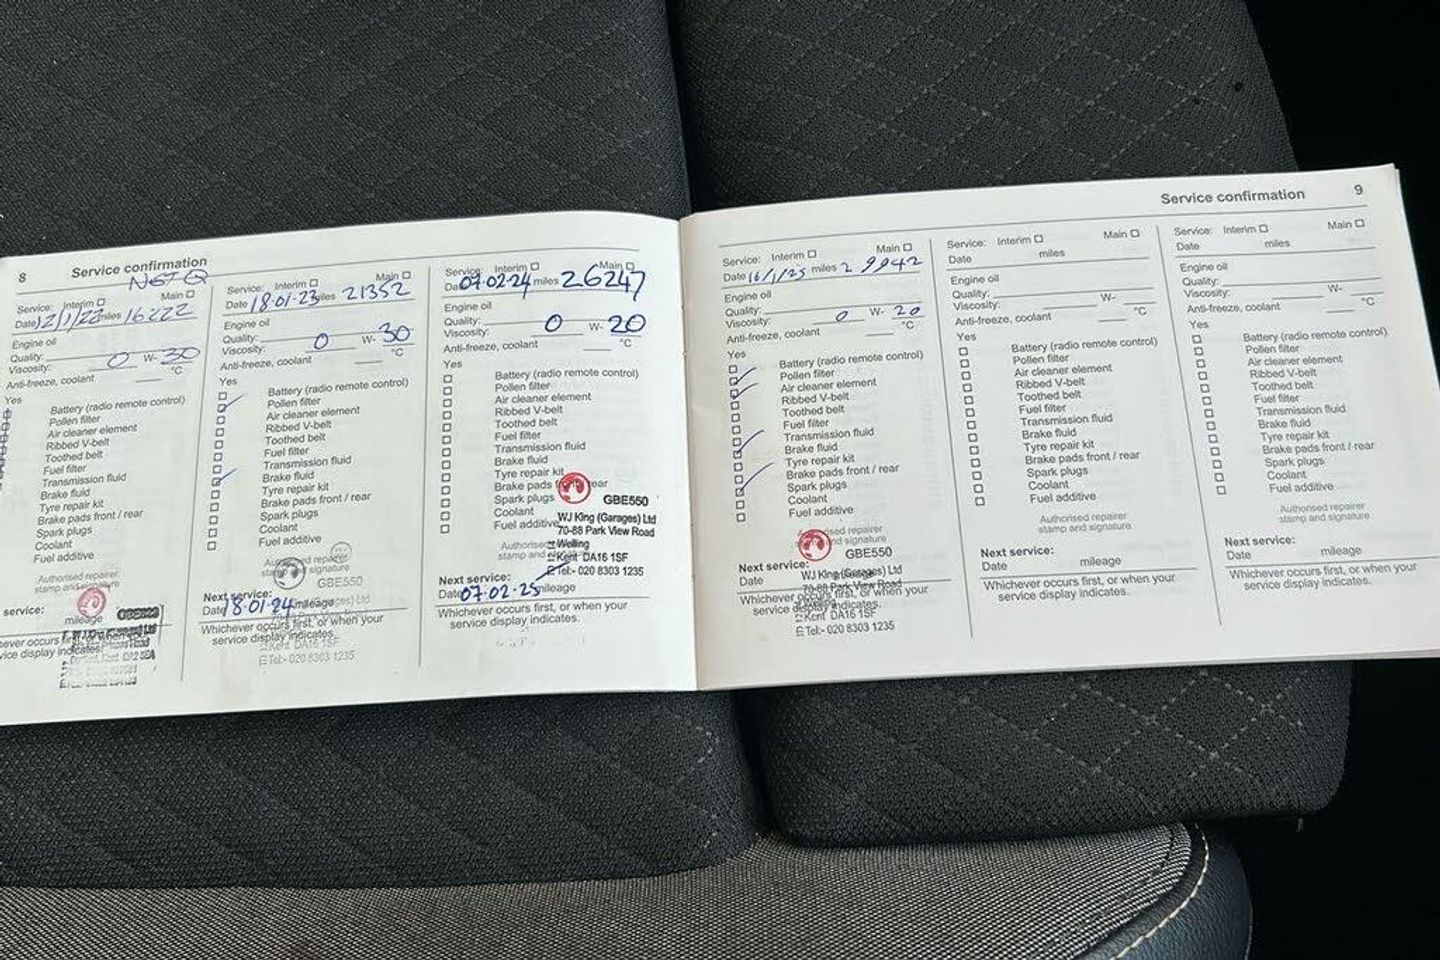 8 Service confirmation
Service: Interim Main
Date 12/1/22 miles 16222
Engine oil
Quality:
Viscosity: 0 W- 30
Anti-freeze, coolant °C
Yes
Battery (radio remote control)
Pollen filter
Air cleaner element
Ribbed V-belt
Toothed belt
Fuel filter
Transmission fluid
Brake fluid
Tyre repair kit
Brake pads front / rear
Spark plugs
Coolant
Fuel additive
Authorised repairer
stamp and signature
service:
mileage
service display indicates.
Service: Interim Main
Date 18.01.23 miles 21352
Engine oil
Quality:
Viscosity: 0 W- 30
Anti-freeze, coolant °C
Yes
Battery (radio remote control)
Pollen filter
Air cleaner element
Ribbed V-belt
Toothed belt
Fuel filter
Transmission fluid
Brake fluid
Tyre repair kit
Brake pads front / rear
Spark plugs
Coolant
Fuel additive
Authorised repairer
GBE550
Next service:
Date 18.01.24 mileage
Whichever occurs first, or when your
service display indicates.
Kent DA16 1SF
Tel:- 020 8303 1235
Service: Interim Main
Date 07.02.24 miles 26247
Engine oil
Quality:
Viscosity: 0 W- 20
Anti-freeze, coolant °C
Yes
Battery (radio remote control)
Pollen filter
Air cleaner element
Ribbed V-belt
Toothed belt
Fuel filter
Transmission fluid
Brake fluid
Tyre repair kit
Brake pads front / rear
Spark plugs
Coolant
Fuel additive
GBE550
WJ King (Garages) Ltd
70-88 Park View Road
Welling
Kent DA16 1SF
Tel:- 020 8303 1235
Authorised
stamp and
Next service:
Date 07.02.25 mileage
Whichever occurs first, or when your
service display indicates.
Service confirmation 9
Service: Interim Main
Date 16/1/25 miles 29942
Engine oil
Quality:
Viscosity: 0 W- 20
Anti-freeze, coolant °C
Yes
Battery (radio remote control)
Pollen filter
Air cleaner element
Ribbed V-belt
Toothed belt
Fuel filter
Transmission fluid
Brake fluid
Tyre repair kit
Brake pads front / rear
Spark plugs
Coolant
Fuel additive
GBE550
WJ King (Garages) Ltd
70-88 Park View Road
Kent DA16 1SF
Tel:- 020 8303 1235
Next service:
Date
Whichever occurs first, or when your
service display indicates.
Service: Interim Main
Date miles
Engine oil
Quality:
Viscosity: W-
Anti-freeze, coolant °C
Yes
Battery (radio remote control)
Pollen filter
Air cleaner element
Ribbed V-belt
Toothed belt
Fuel filter
Transmission fluid
Brake fluid
Tyre repair kit
Brake pads front / rear
Spark plugs
Coolant
Fuel additive
Authorised repairer
stamp and signature
Next service:
Date mileage
Whichever occurs first, or when your
service display indicates.
Service: Interim Main
Date miles
Engine oil
Quality:
Viscosity: W-
Anti-freeze, coolant °C
Yes
Battery (radio remote control)
Pollen filter
Air cleaner element
Ribbed V-belt
Toothed belt
Fuel filter
Transmission fluid
Brake fluid
Tyre repair kit
Brake pads front / rear
Spark plugs
Coolant
Fuel additive
Authorised repairer
stamp and signature
Next service:
Date mileage
Whichever occurs first, or when your
service display indicates.